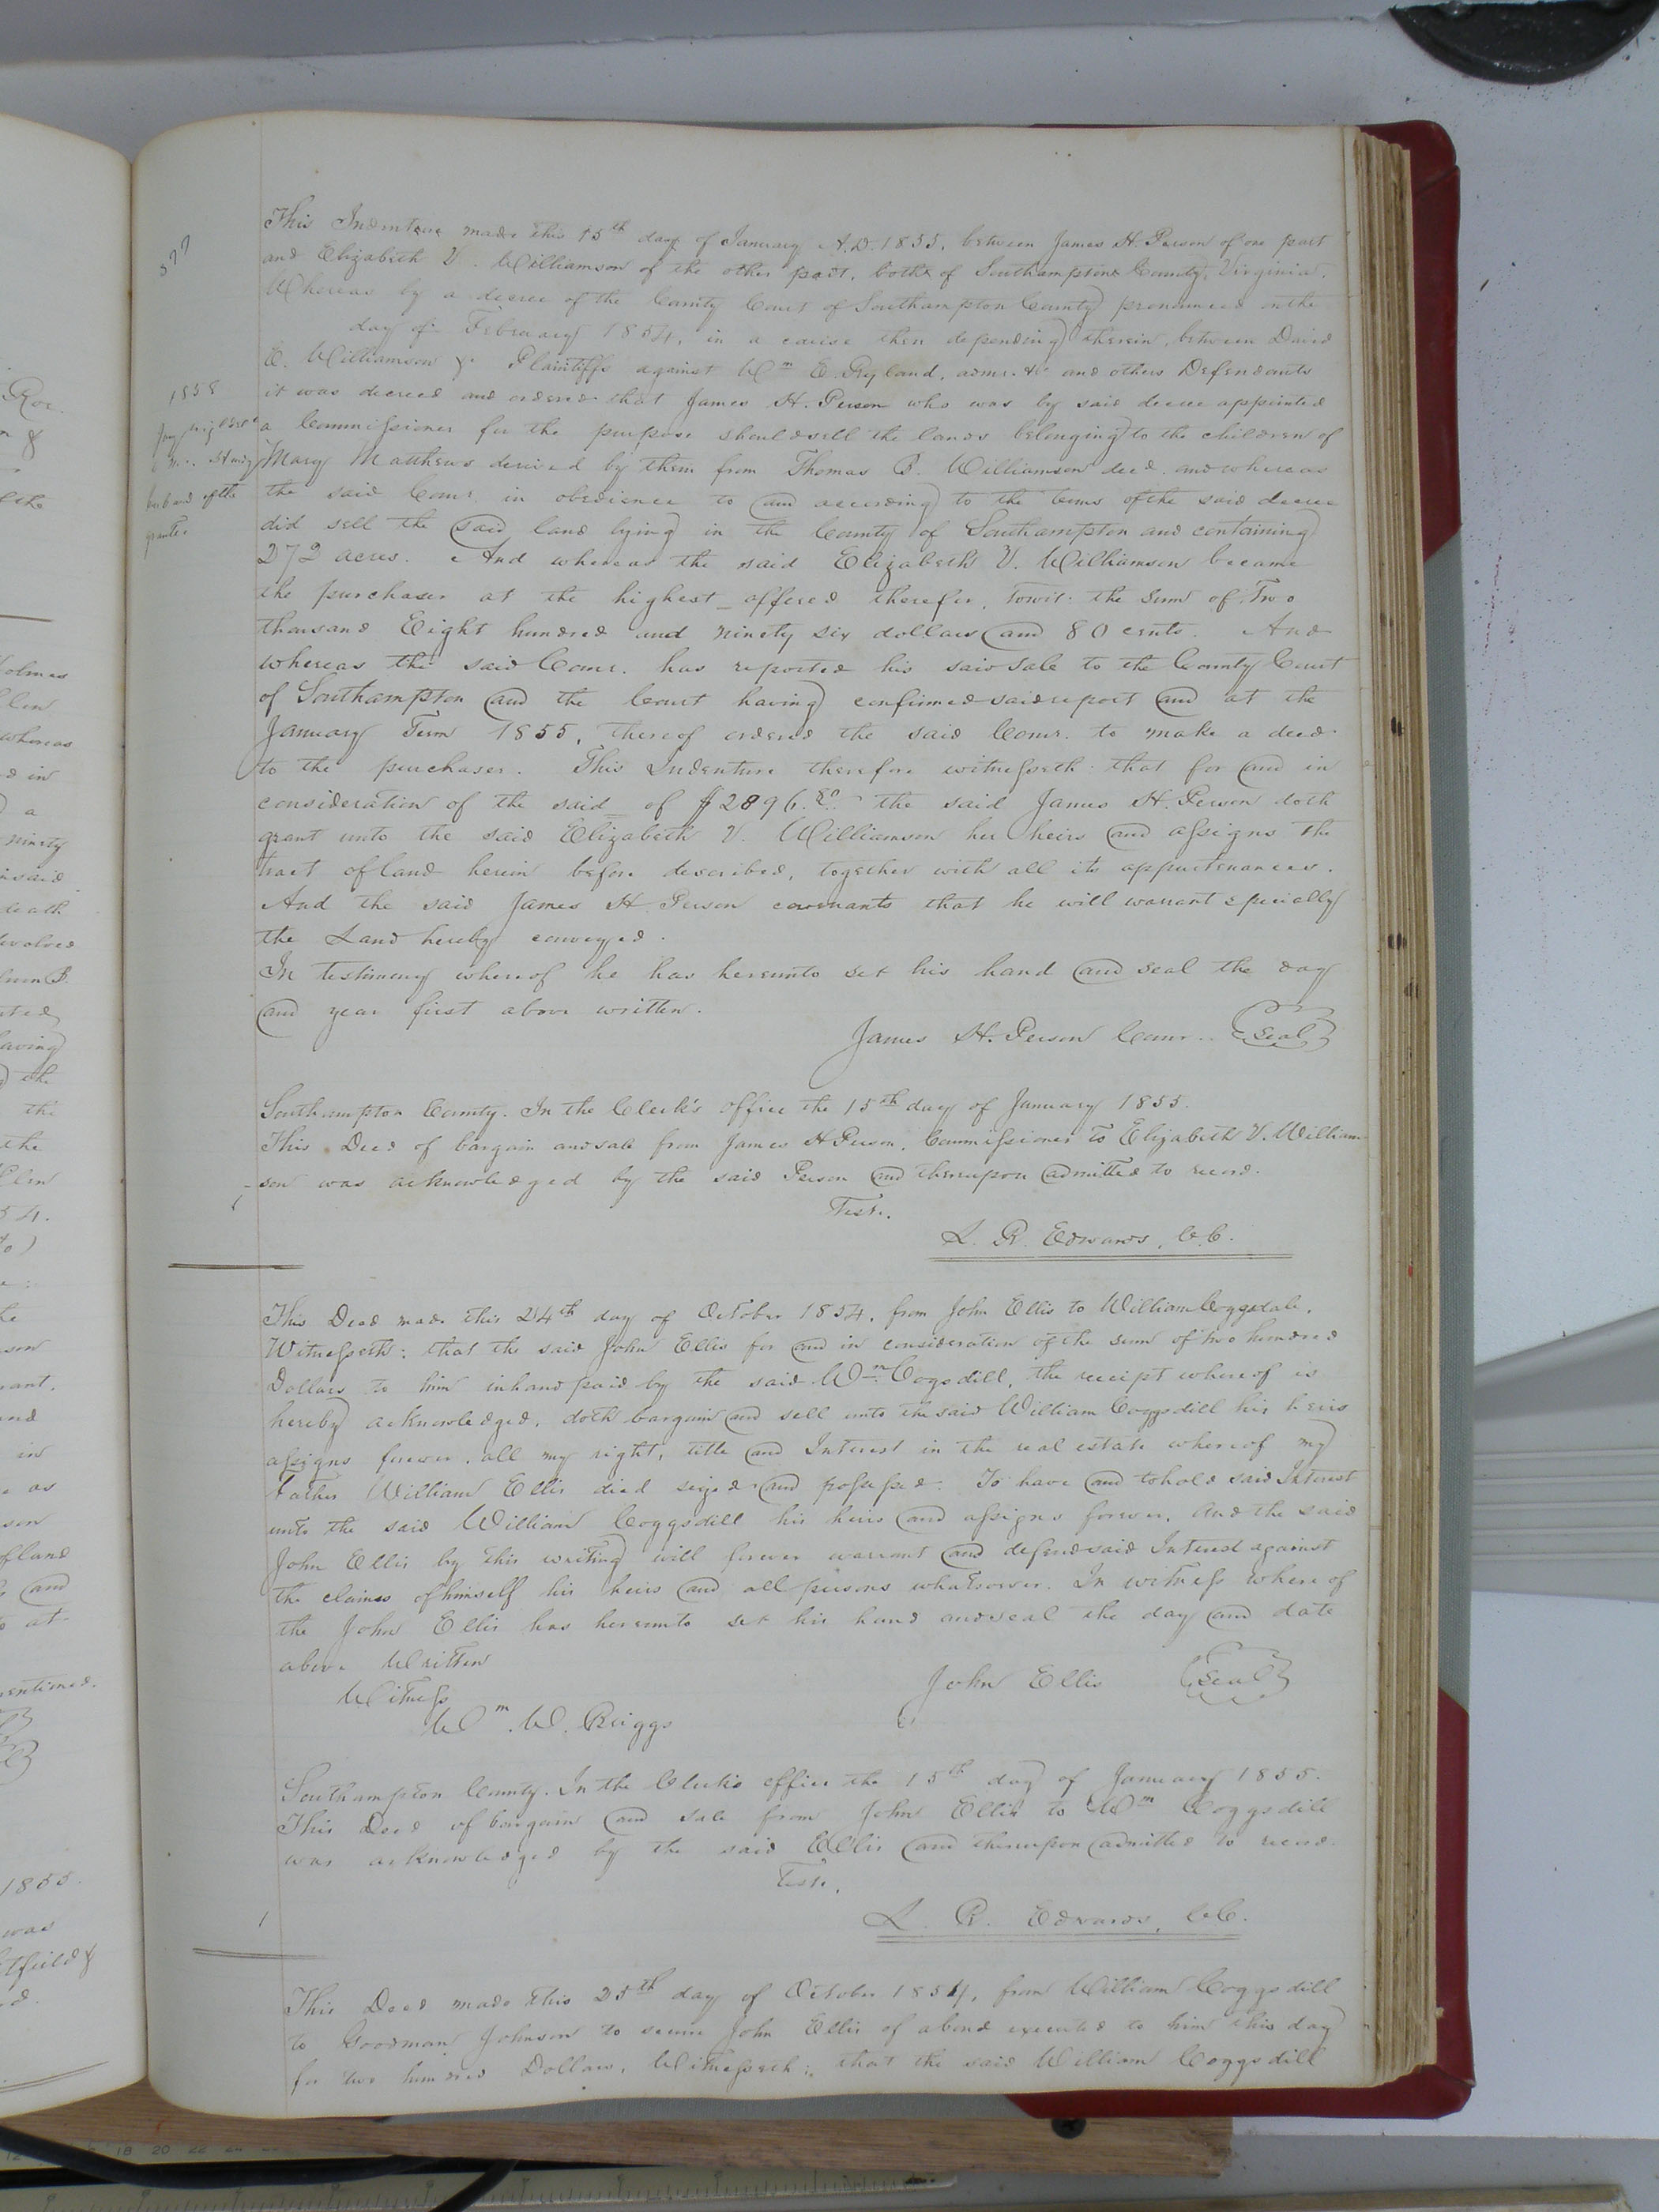 577
This Indenture made this 15th day of January A.D. 1855, between James H. Person of one part
and Elizabeth V. Williamson of the other part, both of Southampton County, Virginia.
Whereas by a decree of the County Court of Southampton County pronounced on the
day of February 1854, in a cause then depending therein, between David
E. Williamson &c Plaintiffs against Wm E. Ryland, admr. &c and others Defendants
it was decreed and ordered that James H. Person who was by said decree appointed
a Commissioner for the purpose should sell the lands belonging to the children of
Mary Matthews derived by them from Thomas B. Williamson decd. and whereas
the said Comr. in obedience to and according to the terms of the said decree
did sell the said land lying in the County of Southampton and containing
272 acres. And whereas the said Elizabeth V. Williamson became
the purchaser at the highest offered therefor, towit: the Sum of Two
thousand Eight hundred and ninety six dollars and 80 cents. And
whereas the said Comr. has reported his said sale to the County Court
of Southampton and the Court having confirmed said report and at the
January Term 1855, thereof ordered the said Comr. to make a deed
to the purchaser. This Indenture therefore witnesseth: that for and in
consideration of the said of $2896.80 the said James H. Person doth
grant unto the said Elizabeth V. Williamson her heirs and assigns the
tract of land herein before described, together with all its appurtenances.
And the said James H. Person covenants that he will warrant specially
the Land hereby conveyed.
In testimony whereof he has hereunto set his hand and seal the day
and year first above written.
James H. Person Comr. Seal
1858
husband of the
grantee
Southampton County. In the Clerk's office the 15th day of January 1855.
This Deed of bargain and sale from James H Person, Commissioner to Elizabeth V. William
-son was acknowledged by the said Person and thereupon admitted to record.
Teste.
L. R. Edwards, C.C.
This Deed made this 24th day of October 1854, from John Ellis to William Coggsdale,
Witnesseth: that the said John Ellis for and in consideration of the sum of two hundred
Dollars to him in hand paid by the said Wm. Cogsdill, the receipt whereof is
hereby acknowledged, doth bargain and sell unto the said William Coggsdill his heirs
assigns forever, all my right, title and Interest in the real estate whereof my
Father William Ellis died seized and possessed. To have and to hold said Interest
unto the said William Coggsdill his heirs and assigns forever. And the said
John Ellis by this writing will forever warrant and defend said Interest against
the claims of himself his heirs and all persons whatsoever. In witness where of
the John Ellis has hereunto set his hand and seal the day and date
above Written
John Ellis Seal
Witness
Wm. W. Briggs
Southampton County. In the Clerks office the 15th day of January 1855.
This Deed of bargain and sale from John Ellis to Wm Coggsdill
was acknowledged by the said Ellis and thereupon admitted to record.
Teste.
L. R. Edwards, C.C.
This Deed made this 25th day of October 1854, from William Coggsdill
to Goodman Johnson to secure John Ellis of a bond executed to him this day
for two hundred Dollars, Witnesseth: that the said William Coggsdill